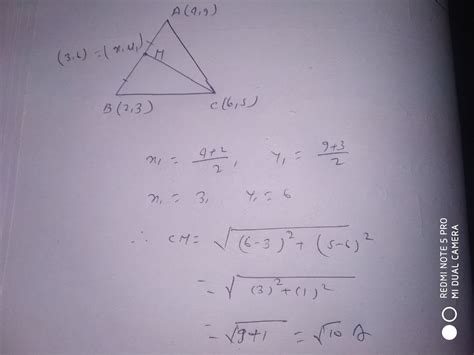 A(4,9)
(3,6) = (x₁,y₁) M
B(2,3) C(6,5)
x₁ = 4+2/2, y₁ = 9+3/2
x₁ = 3, y₁ = 6
∴ CM = √(6-3)² + (5-6)²
= √(3)² + (1)²
= √9+1 = √10
REDMI NOTE 5 PRO
MI DUAL CAMERA